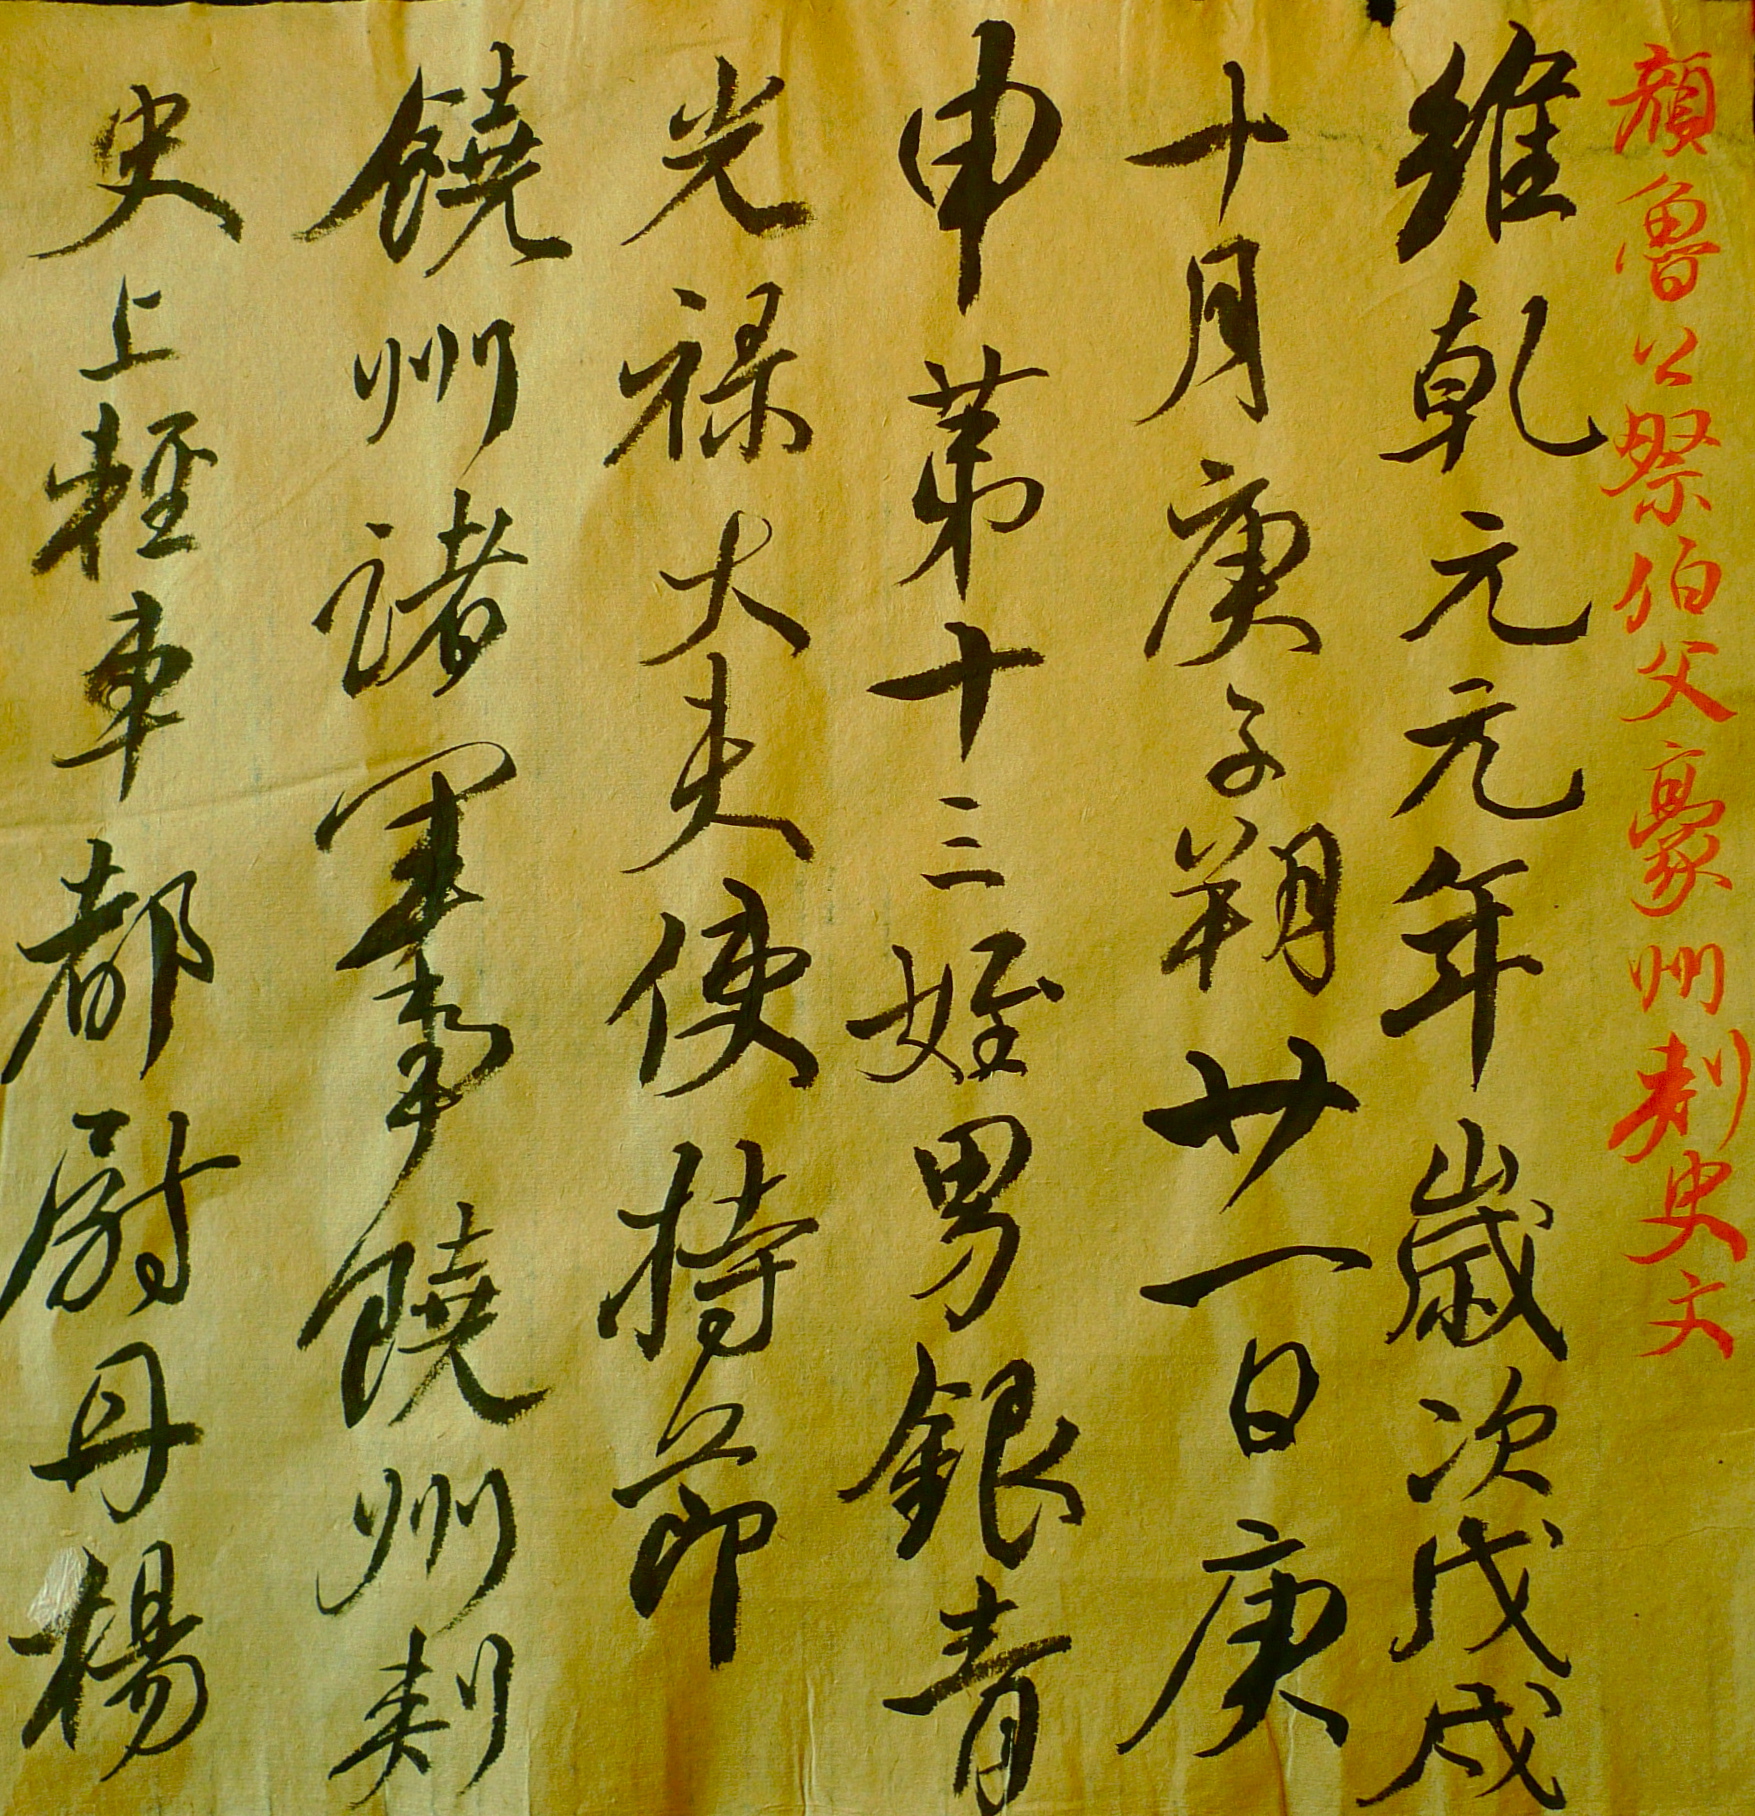 顏魯公祭伯父豪州刺史文
維乾元元年歲次戊戌
十月庚子朔廿一日庚
申第十三姪男銀青
光祿大夫使持節
饒州諸軍事饒州刺
史上輕車都尉丹楊